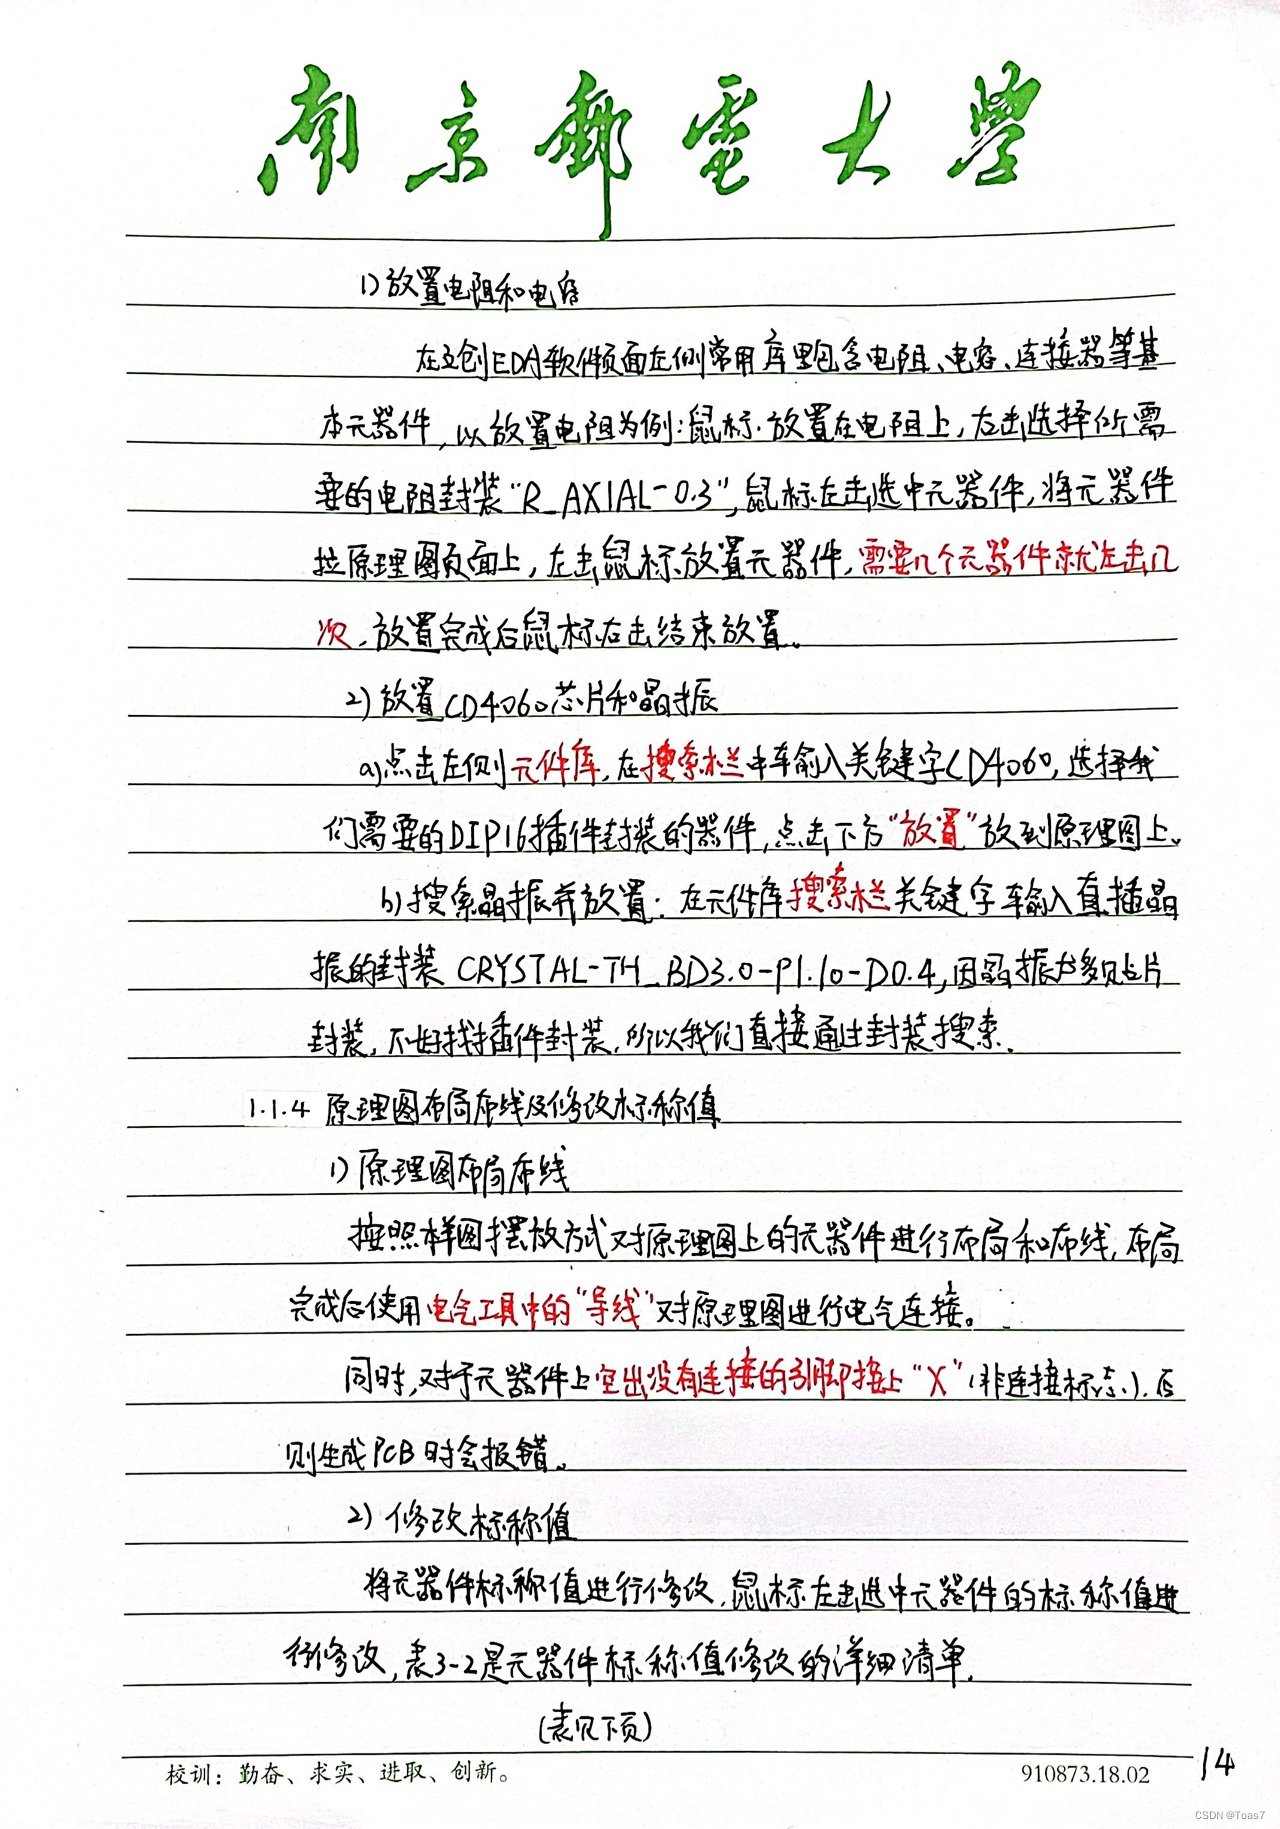 南京郵電大學
1)放置电阻和电容
在立创EDA软件页面左侧常用库里包含电阻、电容、连接器等基
本元器件,以放置电阻为例:鼠标放置在电阻上,右击选择所需
要的电阻封装“R_AXIAL-0.3”,鼠标左击选中元器件,将元器件
拉原理图页面上,左击鼠标放置元器件,需要几个元器件就左击几
次,放置完成后鼠标右击结束放置。
2)放置CD4060芯片和晶振
a)点击左侧元件库,在搜索栏中输入关键字CD4060,选择我
们需要的DIP16插件封装的器件,点击下方“放置”放到原理图上。
b)搜索晶振并放置:在元件库搜索栏关键字输入直插晶
振的封装 CRYSTAL-TH_BD3.0-P1.10-D0.4,因晶振大多见贴片
封装,不好找插件封装,所以我们直接通过封装搜索.
1.1.4 原理图布局布线及修改标称值
1)原理图布局布线
按照样图摆放方式对原理图上的元器件进行布局和布线,布局
完成后使用电气工具中的“导线”对原理图进行电气连接。
同时,对于元器件上空出没有连接的引脚接上“X”(非连接标志),否
则生成PCB时会报错。
2)修改标称值
将元器件标称值进行修改,鼠标左击选中元器件的标称值进
行修改,表3-2是元器件标称值修改的详细清单.
(表见下页)
校训:勤奋、求实、进取、创新。 910873.18.02 14
CSDN @Toas7